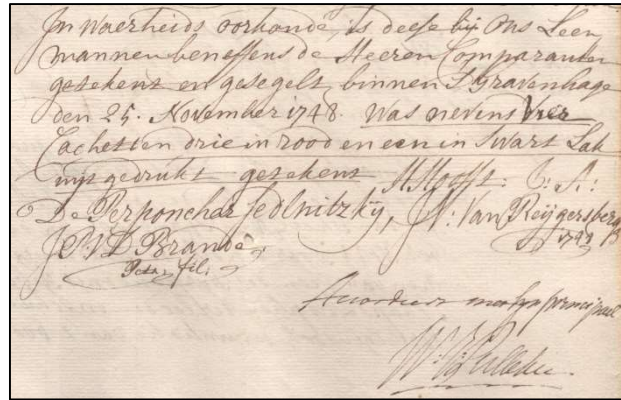 In Waerheids oorkonde, is deese bij Ons Leen
mannen beneffens de Heeren Comparanten
getekent en gesegelt, binnen S'Gravenhage
den 25. November 1748. Was nevens Vier
Cachetten drie in rood en een in Swart Lak
uijtgedrukt getekent H. Hooft.
De Perponcher Sedlnitzkÿ, N: Van Reÿgersberg
1749
J P V D Brande
Petri fil.
Accordeert met syn principael
W: